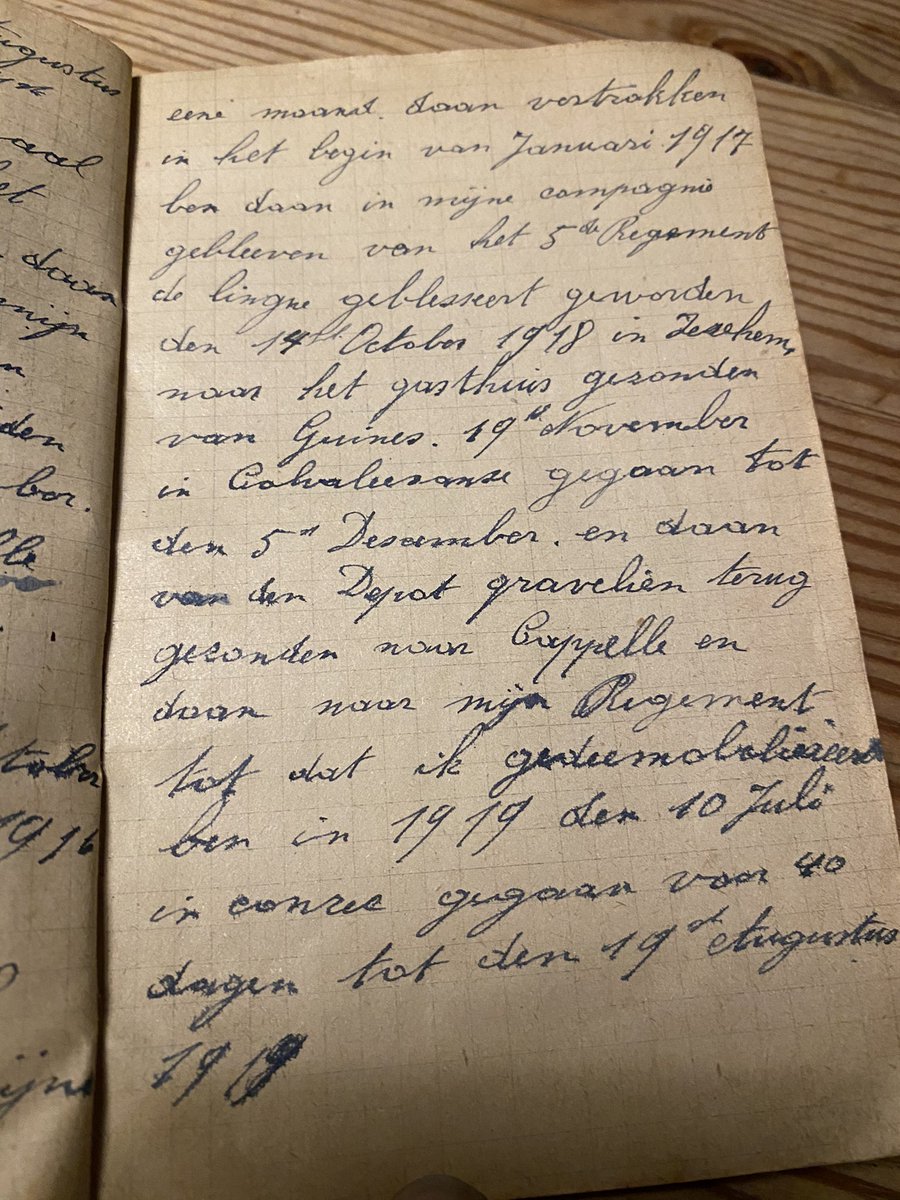 ugustus
aal
let
daan
mijn
n
den
bor.
lle
tober
1916
ijne
eene maand. daan vertrokken
in het begin van Januari 1917
ben daan in mijne compagnie
gebleeven van het 5de Regement
de lingne geblesseert geworden
den 14st October 1918 in Iezehem,
naar het gasthuis gezonden
van Guines. 19st November
in Colvaleesanse gegaan tot
den 5st Desember. en daan
van den Depot gravelien terug
gezonden naar Cappelle en
daan naar mijn Regement
tot dat ik
ben in 1919 den 10 Juli
in conzee gegaan voor 40
dagen tot den 19st Augustus
1919